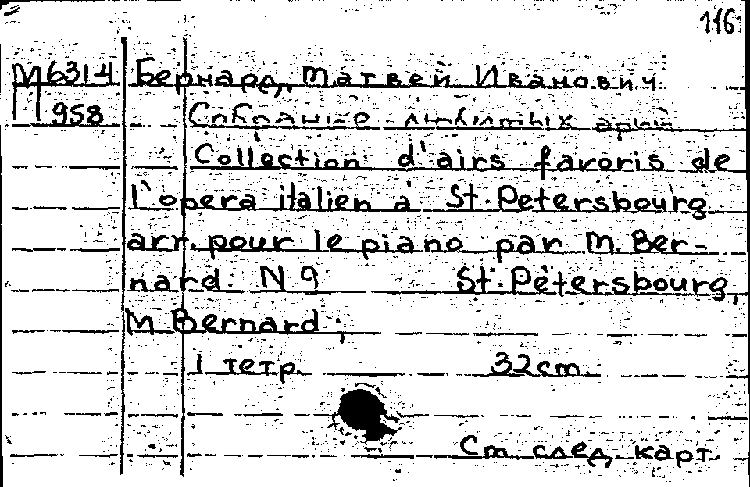 116
М6314 Бернард, Матвей Иванович
П958 Собрание любимых арий
Collection d'airs favoris de
l'opera italien à St. Petersbourg
arr. pour le piano par M. Ber-
nard. N 9 St. Pétersbourg,
M. Bernard,
1 тетр. 32 cm.
См. след. карт.